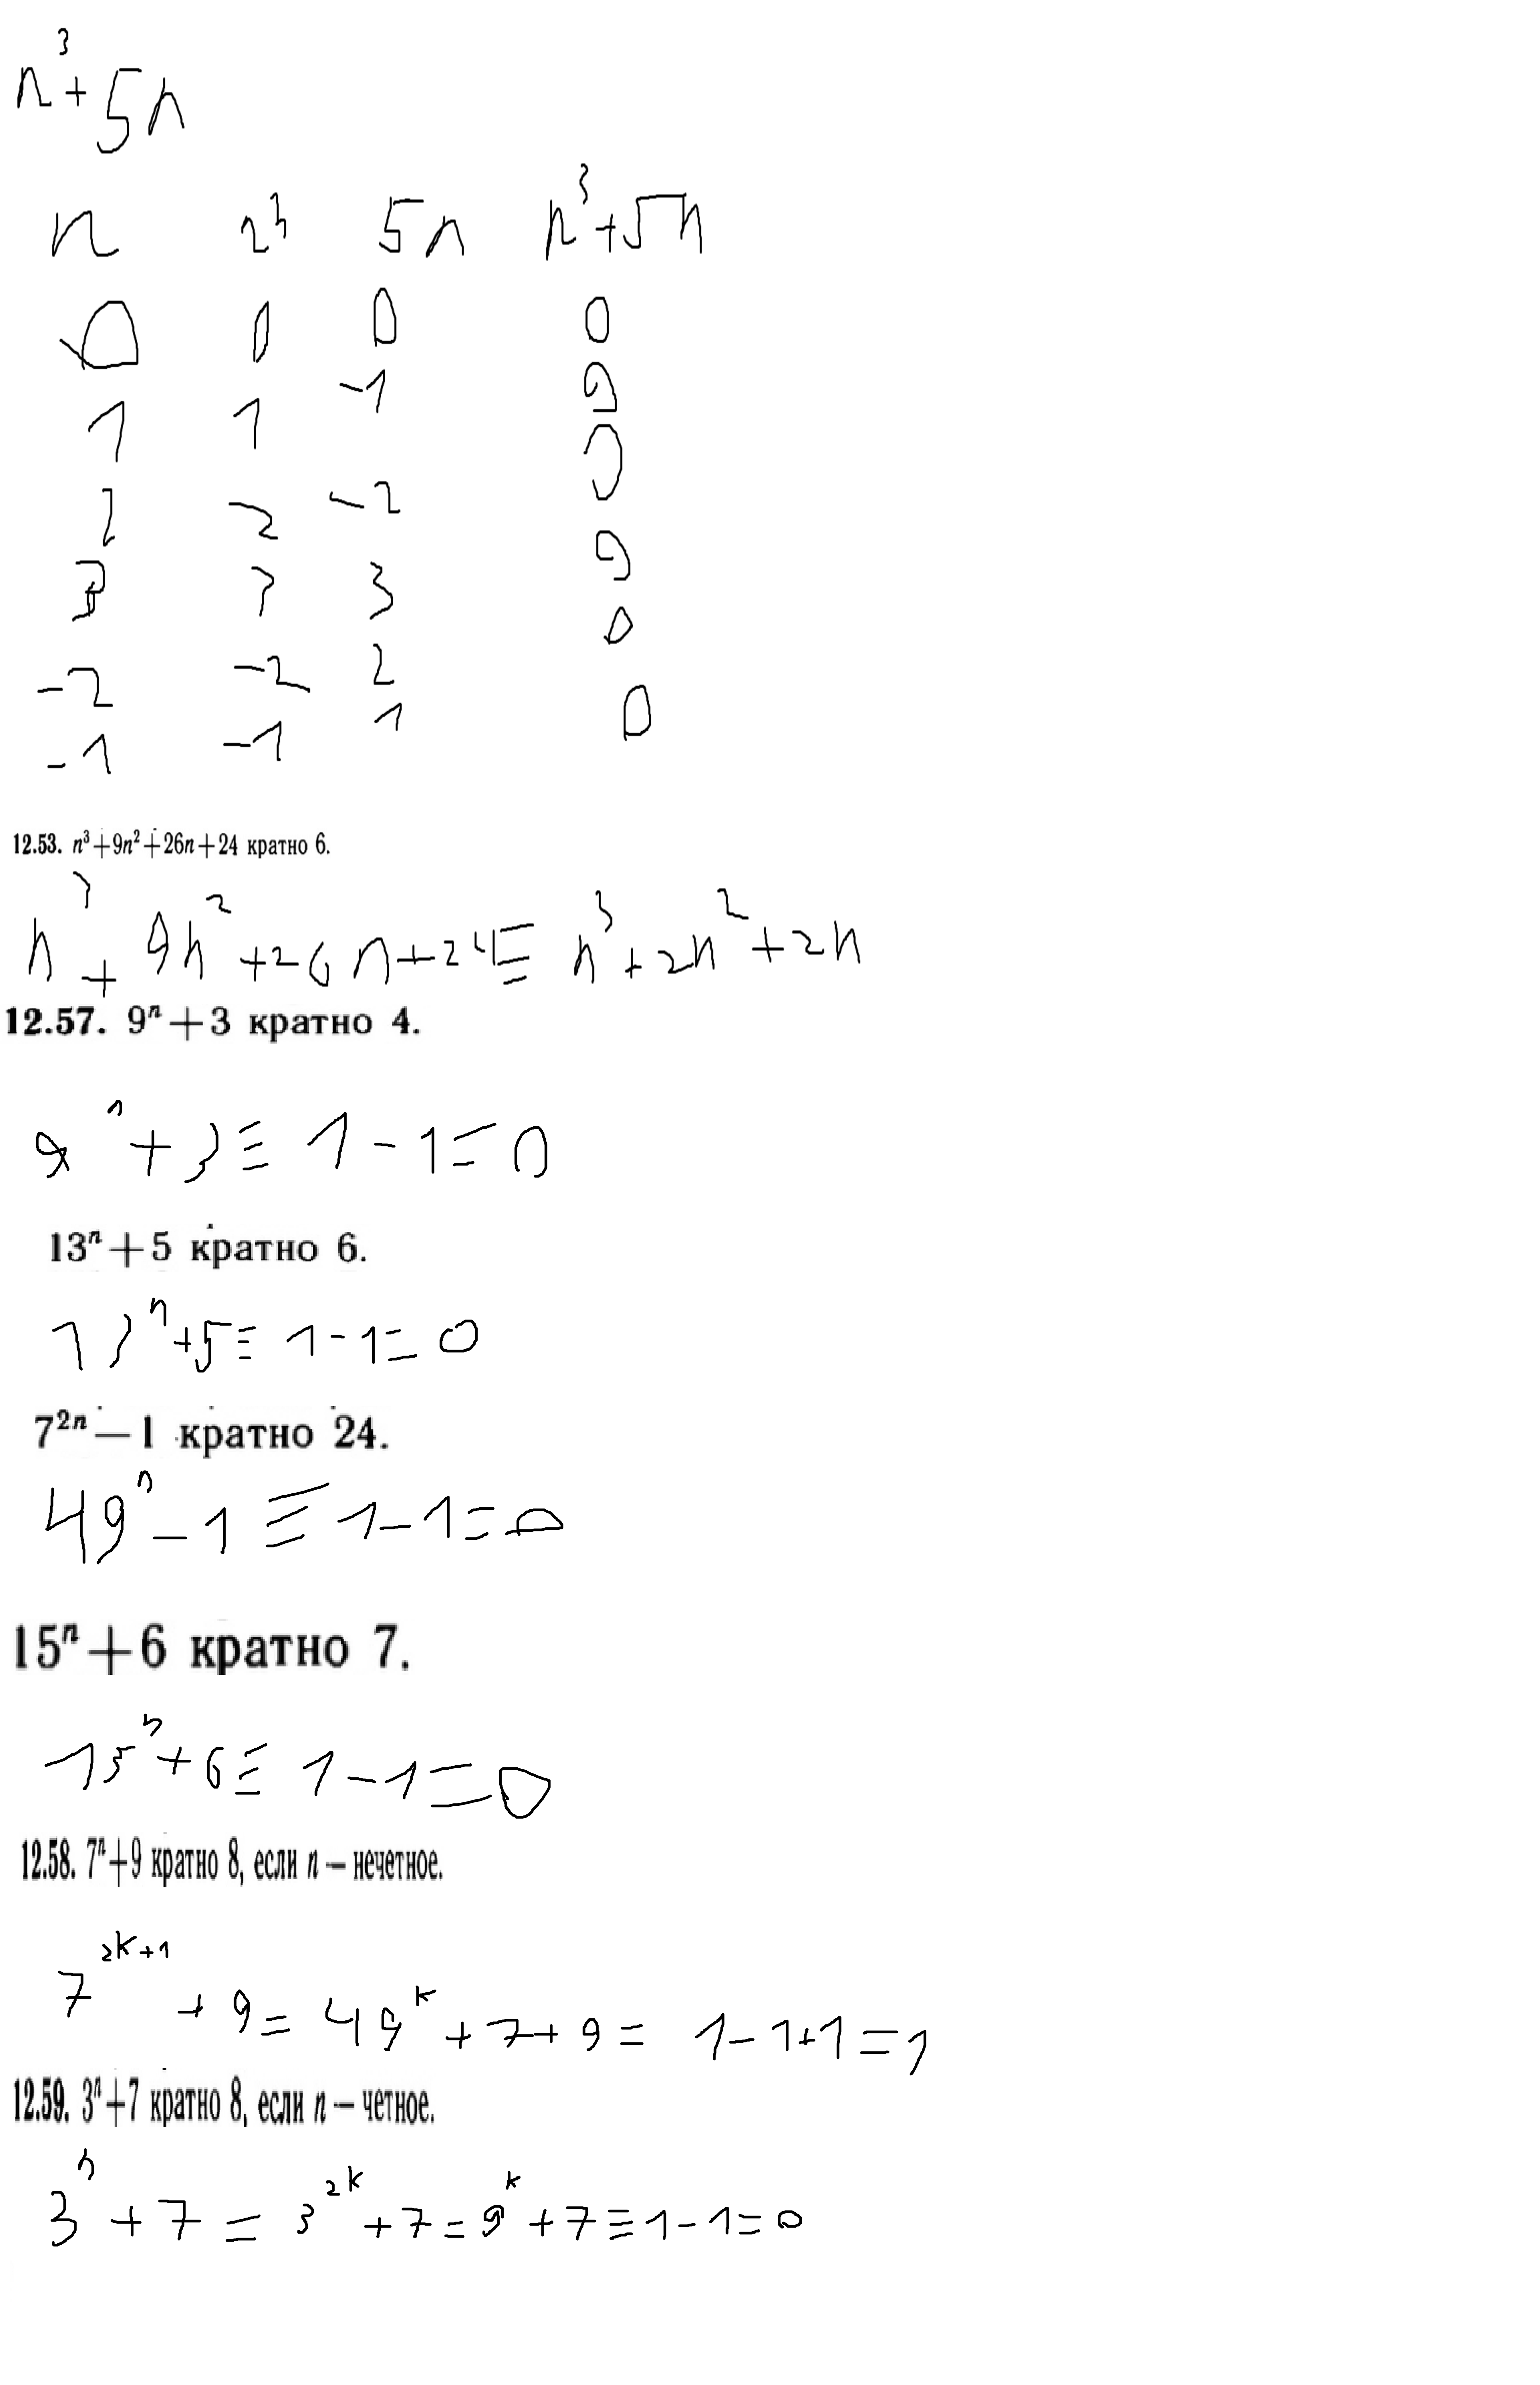 n³+5n
n n³ 5n n³+5n
0 0 0 0
1 1 -1 0
2 2 -2 0
3 3 3 0
-2 -2 2 0
-1 -1 1 0
12.53. n³+9n²+26n+24 кратно 6.
n³+9n²+26n+24≡n³+2n²+2n
12.57. 9ⁿ+3 кратно 4.
9ⁿ+3≡1-1=0
13ⁿ+5 кратно 6.
13ⁿ+5≡1-1=0
7²ⁿ−1 кратно 24.
49ⁿ-1≡1-1=0
15ⁿ+6 кратно 7.
15ⁿ+6≡1-1=0
12.58. 7ⁿ+9 кратно 8, если n — нечетное.
7²ᵏ⁺¹+9=49ᵏ+7+9=1-1+1=1
12.59. 3ⁿ+7 кратно 8, если n — четное.
3ⁿ+7=3²ᵏ+7=9ᵏ+7≡1-1=0